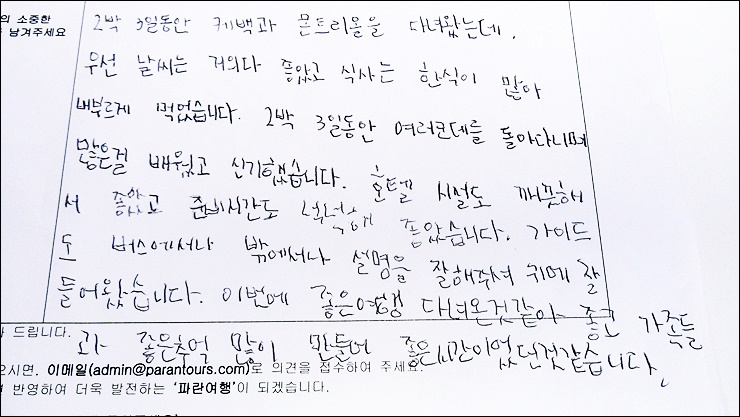 의 소중한
남겨주세요
2박 3일동안 퀘백과 몬트리올을 다녀왔는데,
우선 날씨는 거의다 좋았고 식사는 한식이 많아
배부르게 먹었습니다. 2박 3일동안 여러군데를 돌아다니며
많은걸 배웠고 신기했습니다. 호텔 시설도 깨끗해
서 좋았고 준비시간도 넉넉해 좋았습니다. 가이드
도 버스에서나 밖에서나 설명을 잘해주셔 귀에 잘
들어왔습니다. 이번에 좋은여행 다녀온것같아 좋고 가족들
과 좋은추억 많이 만들어 좋은시간이었던것같습니다.
드립니다.
으시면, 이메일(admin@parantours.com)로 의견을 접수하여 주세요.
반영하여 더욱 발전하는 '파란여행'이 되겠습니다.